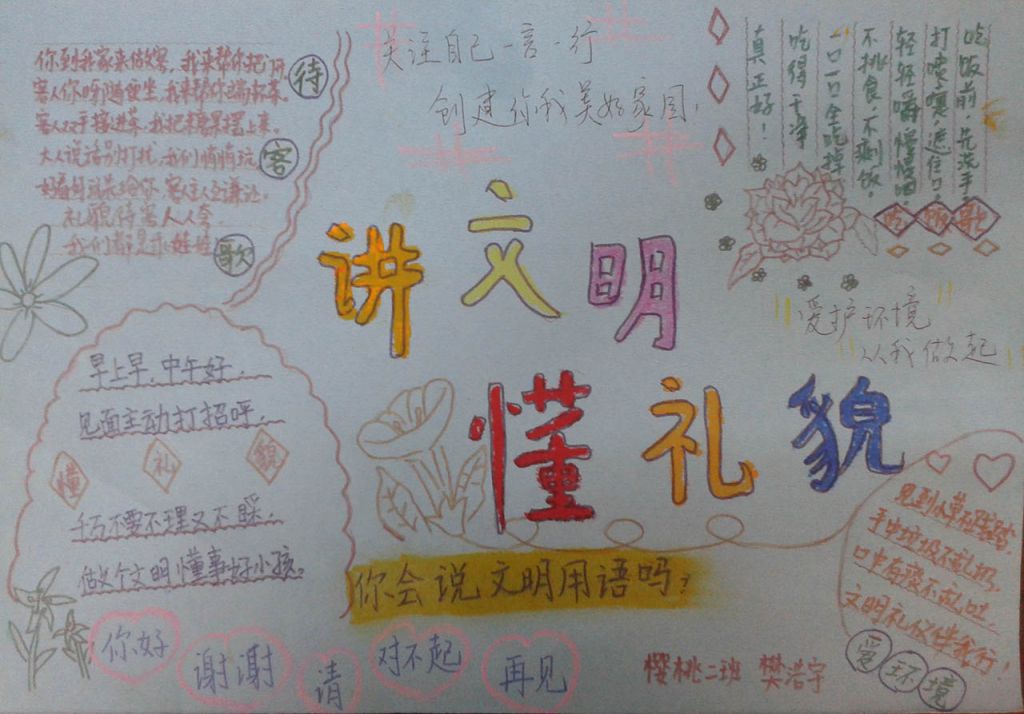 关注自己一言一行
创建你我美好家园!
你到我家来做客,我来帮你把门
客人你呀随便坐,我来帮你端杯茶。
客人双手接进茶,我把糖果摆上来。
大人说话别打扰,我们悄悄玩
礼貌待客人人会
我们都是乖娃娃
待
客
歌
吃饭前,先洗手
打喷嚏,遮住口。
轻轻嚼慢慢咽。
不挑食不剩饭。
一口一口全吃掉
吃得干净
真正好!
吃饭歌
讲文明
懂礼貌
"爱护环境"
"从我做起"
早上早,中午好,
见面主动打招呼,
懂 礼 貌
千万不要不理又不睬,
做个文明懂事好小孩。
见到小草
手中垃圾不乱扔,
口中有痰不乱吐
文明礼仪伴我行!
爱环境
你会说文明用语吗?
你好
谢谢
请
对不起
再见
樱桃二班 樊浩宇